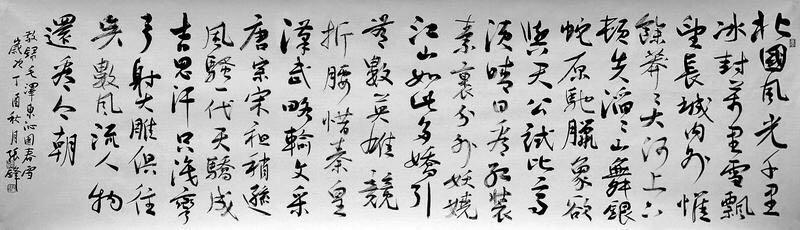 北國風光千里
冰封萬里雪飄
望長城內外惟
餘莽〻大河上下
頓失滔〻山舞銀
蛇原馳臘象欲
與天公試比高
須晴日看紅裝
素裹分外妖嬈
江山如此多嬌引
無數英雄競
折腰惜秦皇
漢武略輸文采
唐宗宋祖稍遜
風騷一代天驕成
吉思汗只識彎
弓射大雕俱往
矣數風流人物
還看今朝
敬錄毛澤東沁園春雪
歲次丁酉秋月